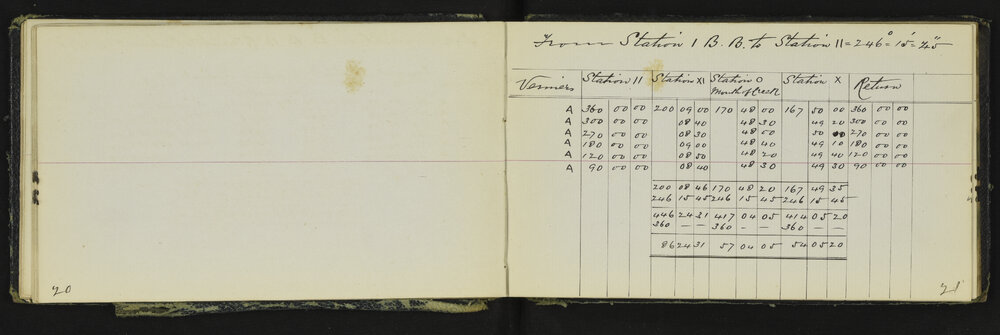 From Station I B. B. to Station II = 246° = 15' = 45"
Verniers Station II Station XI Station O Mouth of Creek Station X Return
A 360 00 00 200 09 00 170 48 00 167 50 00 360 00 00
A 300 00 00 08 40 48 30 49 20 300 00 00
A 270 00 00 08 30 48 00 50 00 270 00 00
A 180 00 00 09 00 48 40 49 10 180 00 00
A 120 00 00 08 50 48 20 49 40 120 00 00
A 90 00 00 08 40 48 30 49 30 90 00 00
200 08 46 170 48 20 167 49 35
246 15 45 246 15 45 246 15 45
446 24 31 417 04 05 414 05 20
360 — — 360 — — 360 — —
86 24 31 57 04 05 54 05 20
20
21